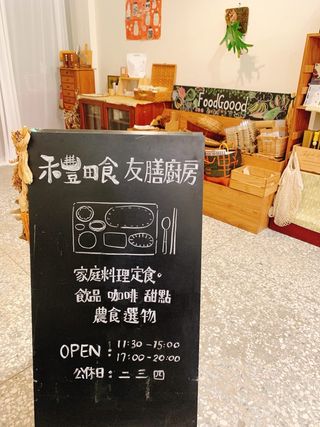 FoodGoood
禾豐田食 友膳廚房
家庭料理定食。
飲品 咖啡 甜點
農食選物
OPEN : 11:30-15:00
17:00-20:00
公休日: 二 三 四